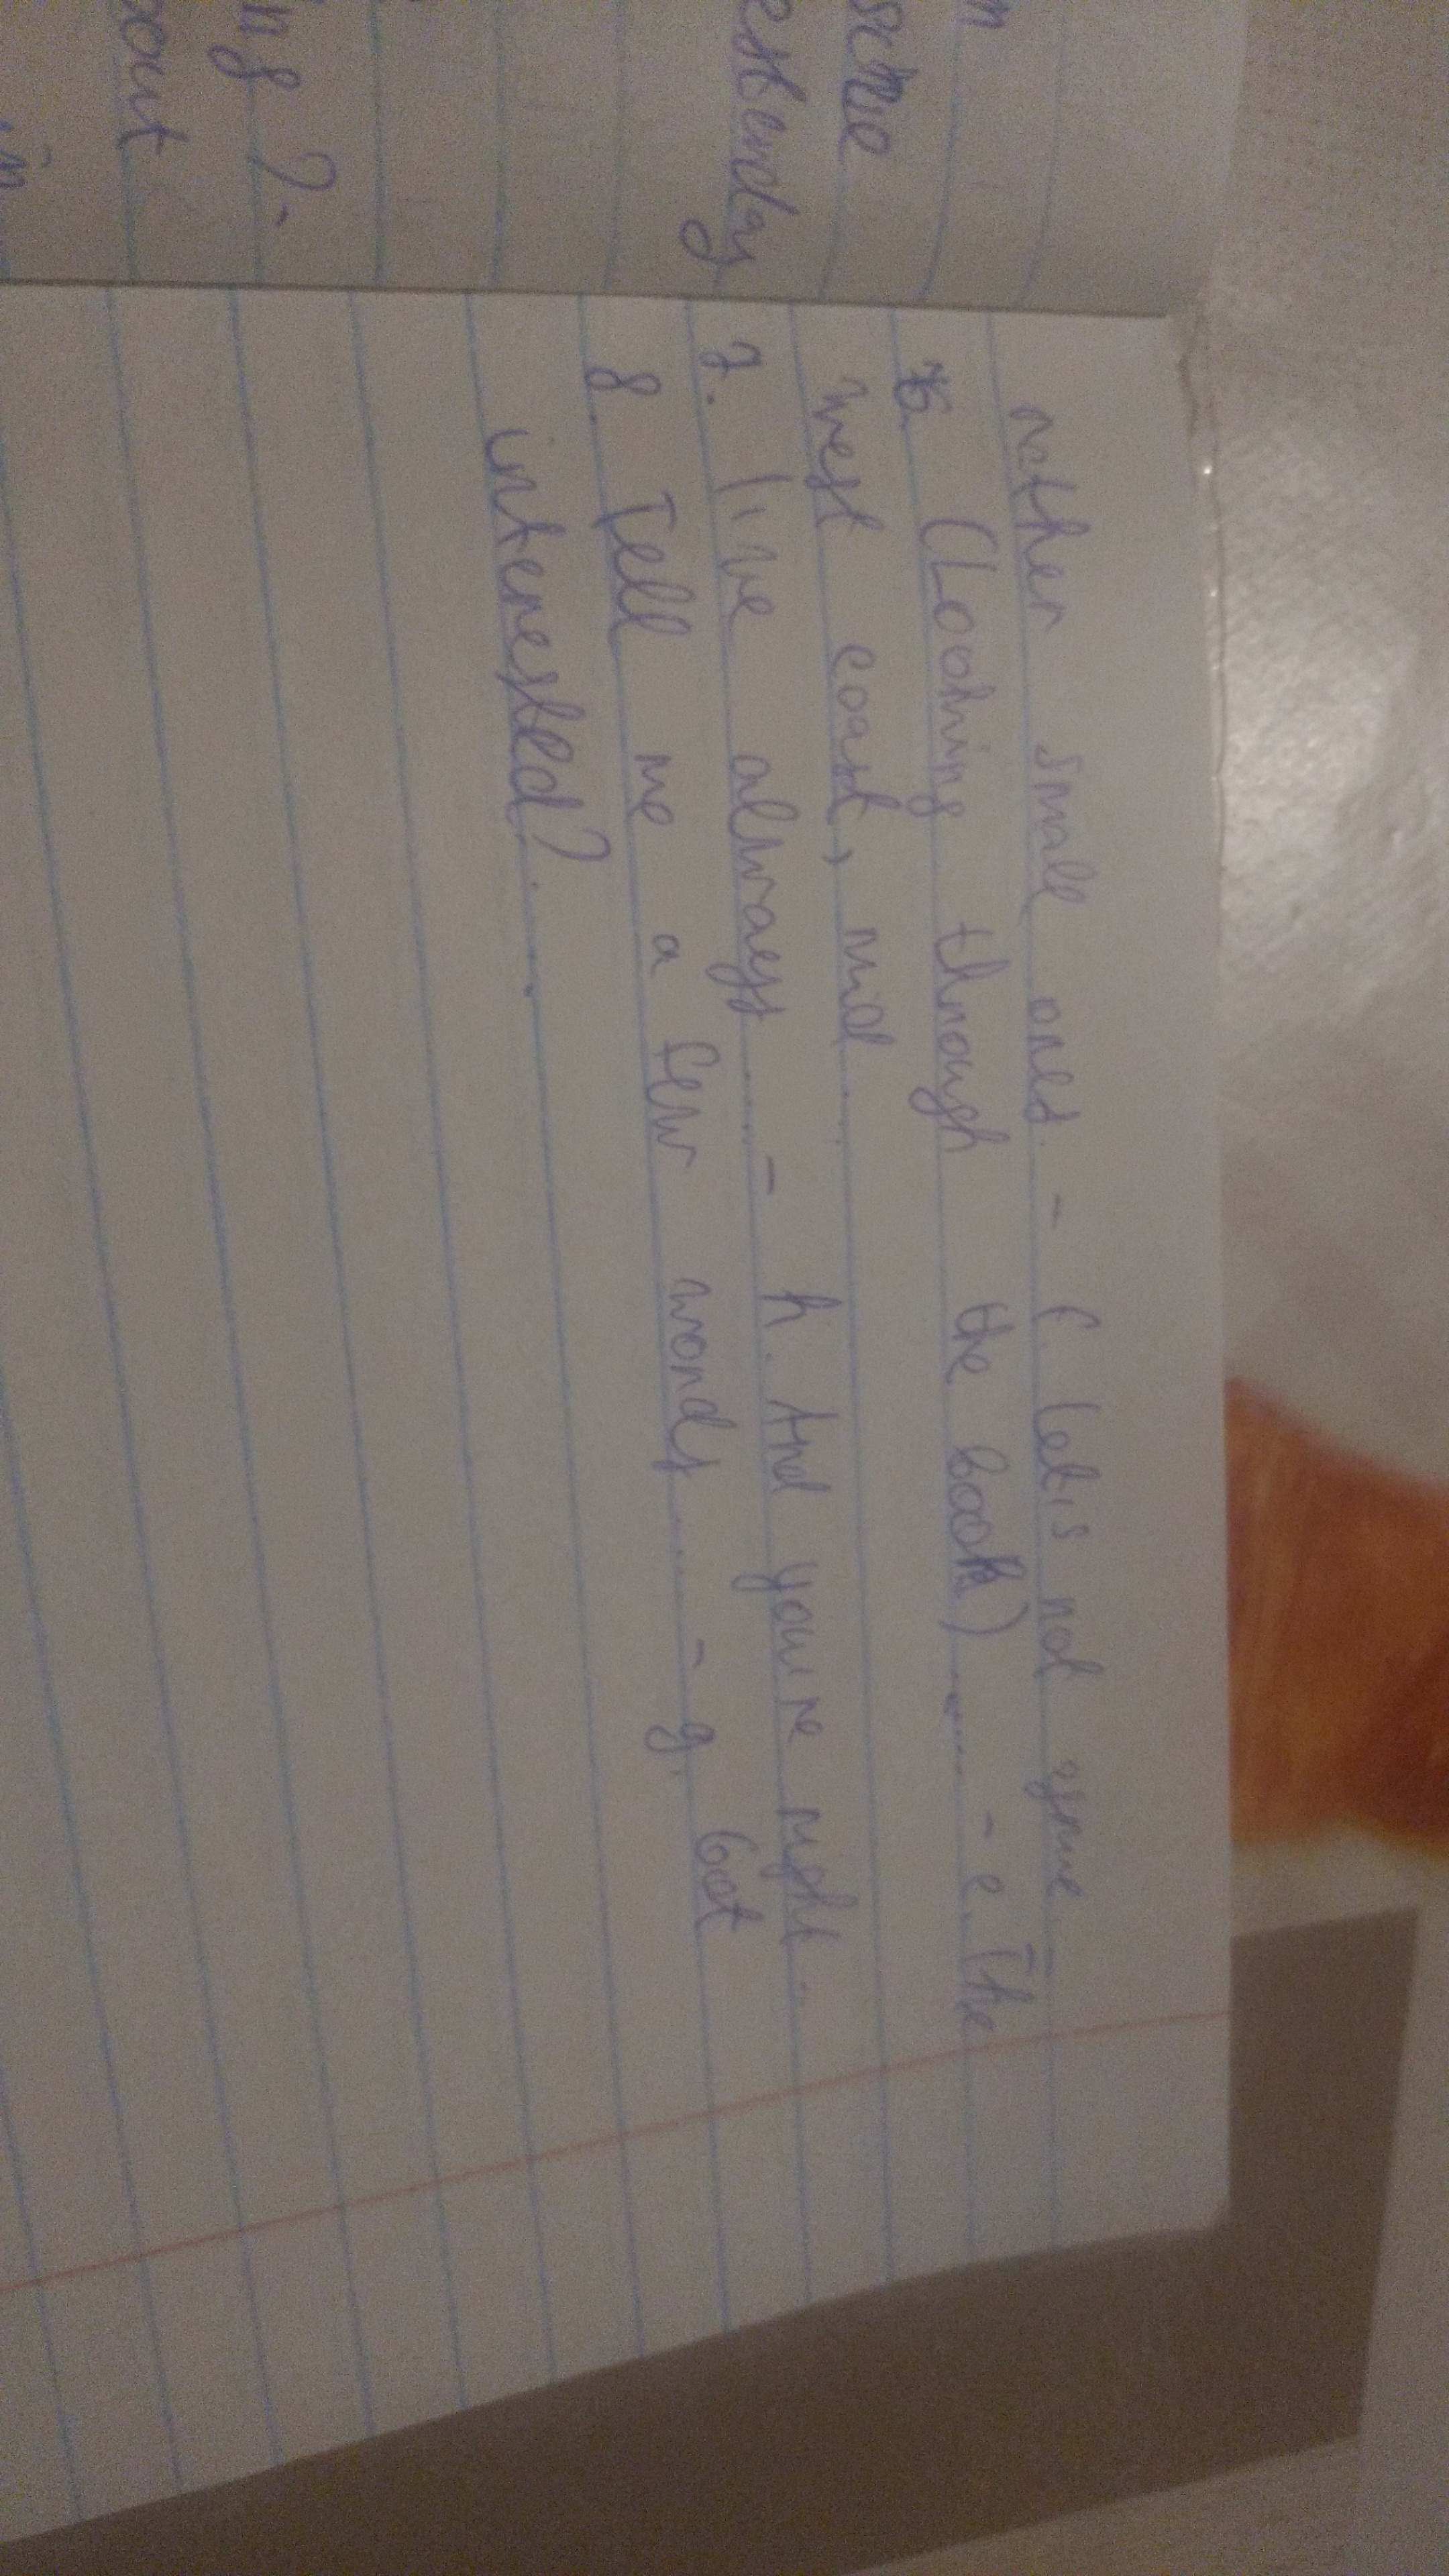 m
scrie
esterday
ng?
bout
in
rother small ones. - f let's not give
6. (Looking through the book) ..... - e. The
west coast, mid...
7. I've always ..... - h. And you're right...
8 Tell me a few words ..... - g. bat
interested?